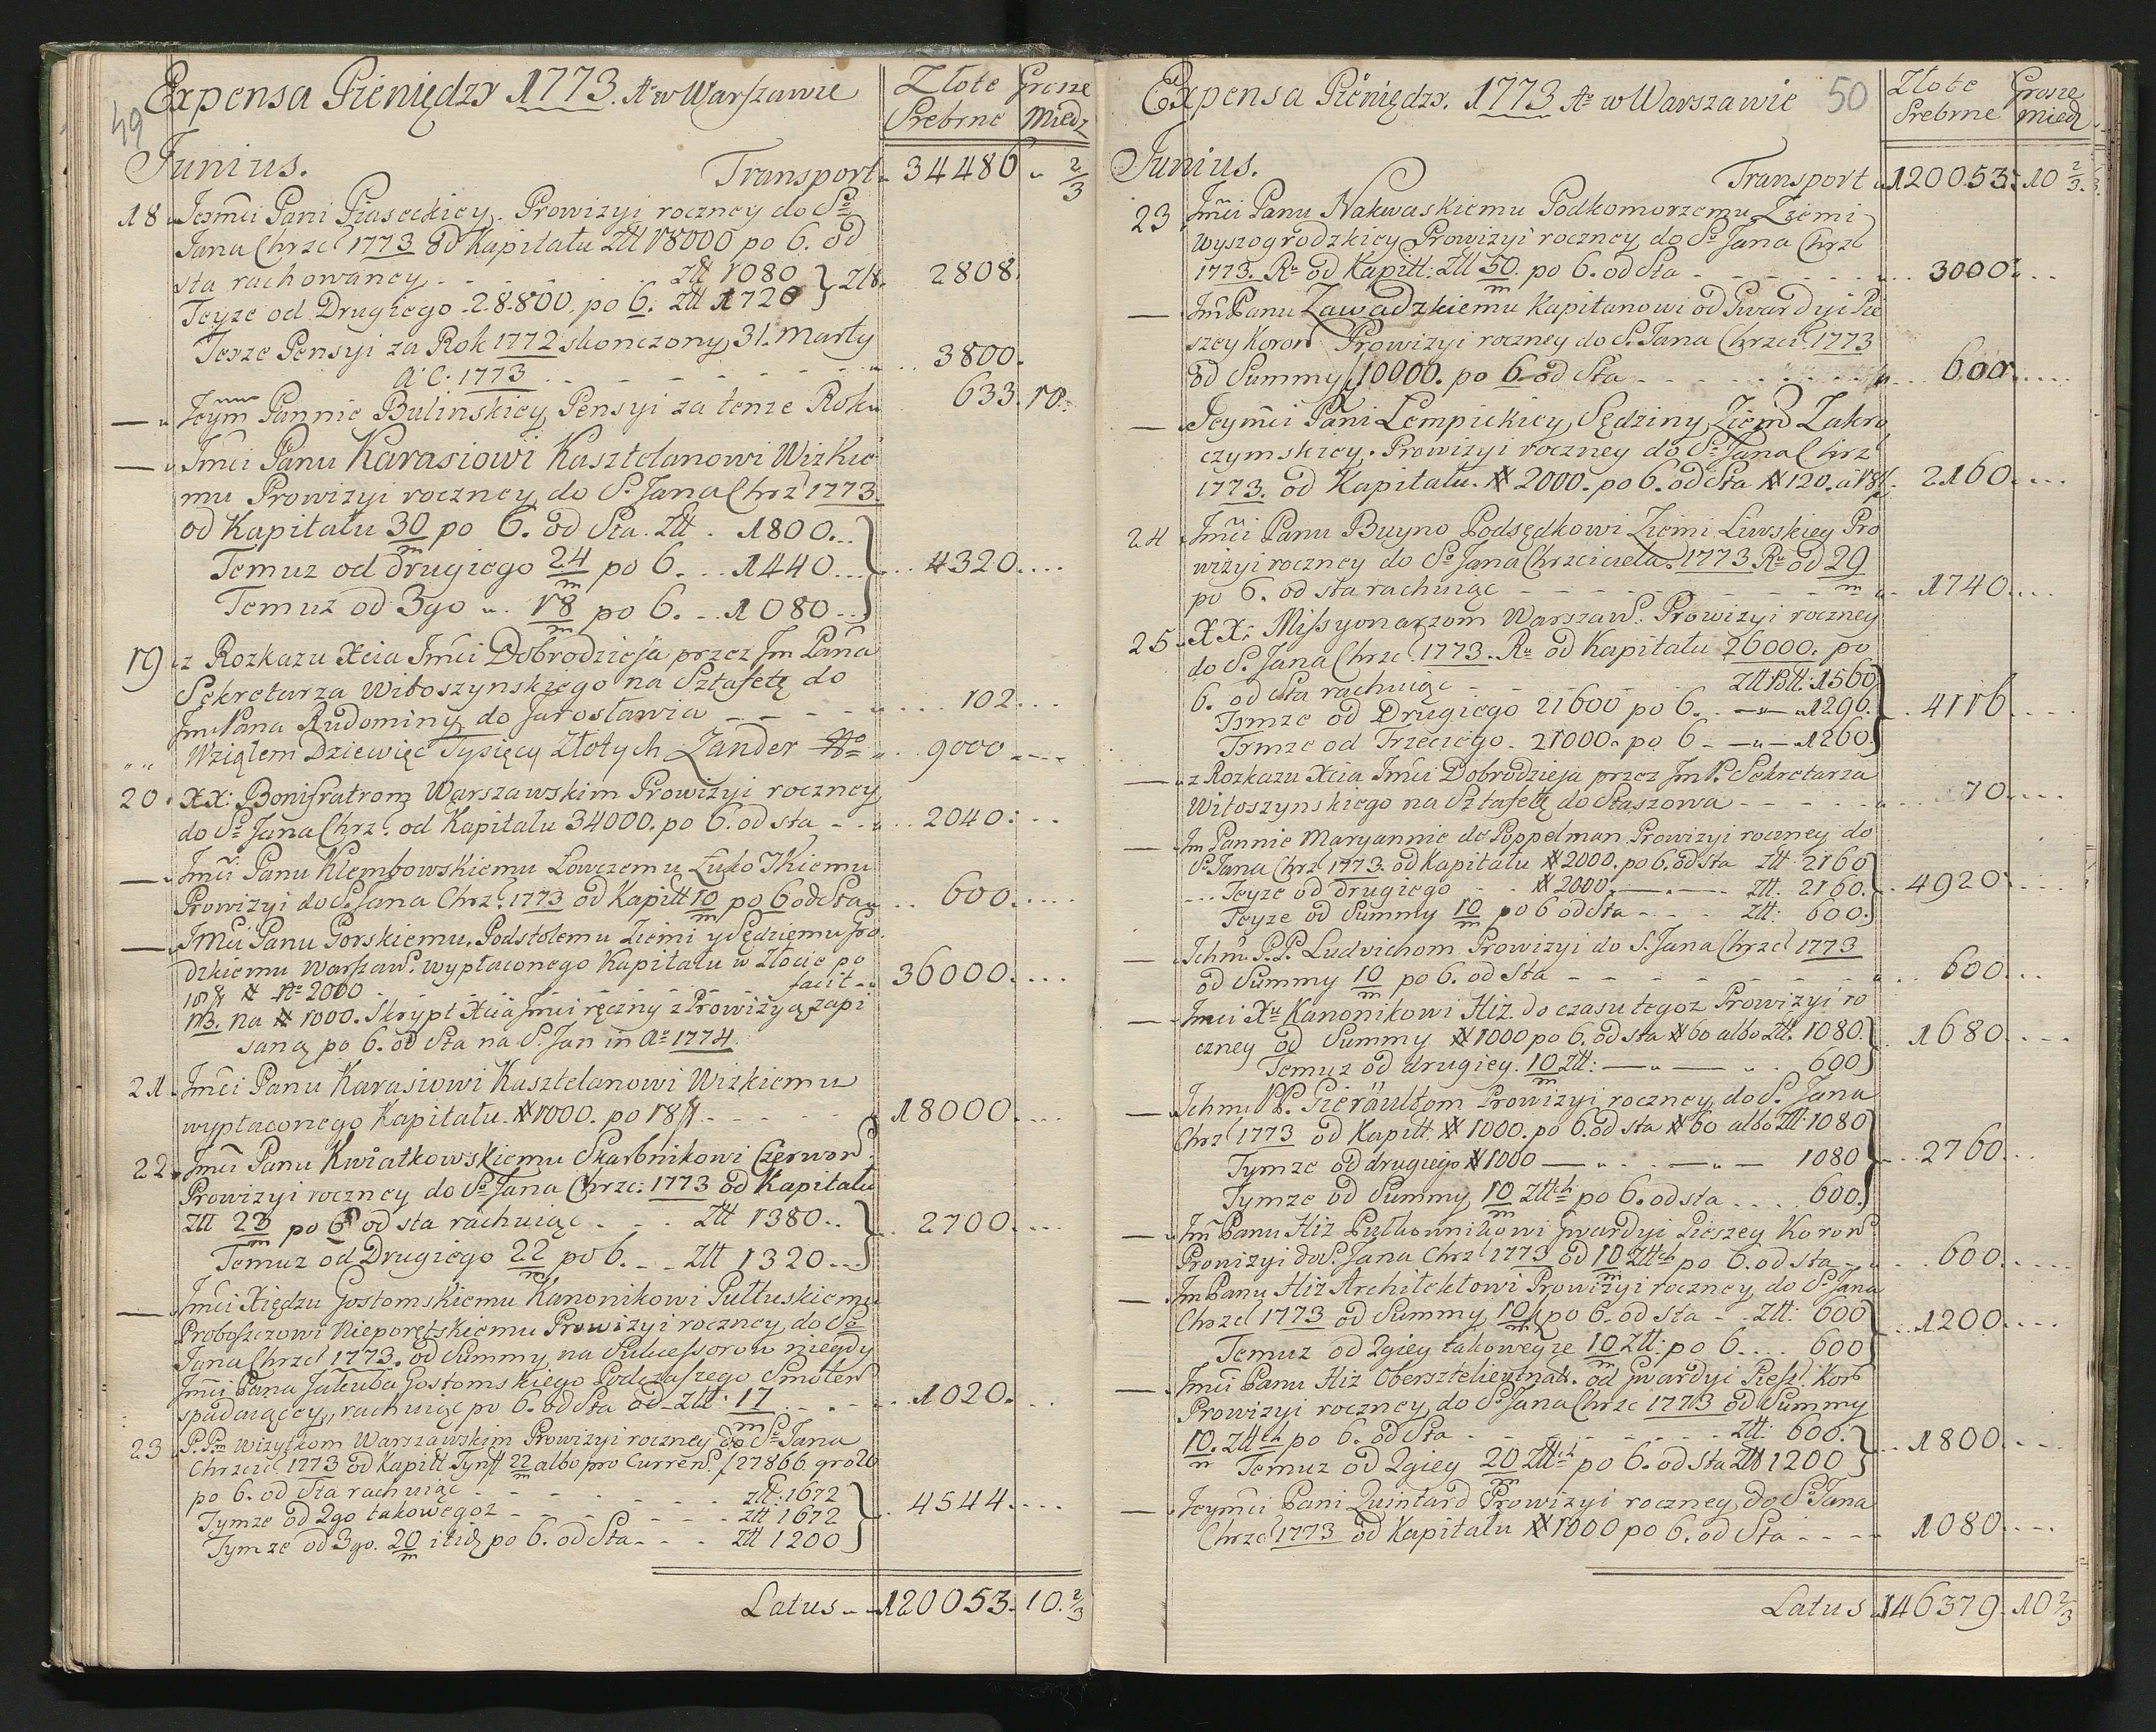 49
Expensa Pieniędzy 1773. Aº w Warszawie
Złote Grosze
Srebrne Miedz
Junius.
Transport 34486 " 2/3
18 Jejmci Pani Piaseckiey. Prowizyi roczney do Sº
Jana Chrzcl 1773 od Kapitału Złł 18000 po 6. od
sta rachowaney . . . złł 1080 } Złł. 2808.
Teyze od Drugiego 28.800. po 6. złł 1728
Teyze Pensyi za Rok 1772 skonczony 31. Marty
a. c. 1773 . . . 3800.
— Jeym Pannie Bulinskiey Pensyi za tenze Roku 633. 10.
— Jmci Panu Karasiowi Kasztelanowi Wizkie
mu Prowizyi roczney do S. Jana Chrz 1773
od Kapitału 30/m po 6. od Sta. Złł . 1800...
Temuz od drugiego 24/m po 6. ... 1440... } 4320....
Temuz od 3go " 18/m po 6. .. 1080..
19 z Rozkazu Xcia Jmci Dobrodzieja przez Jm Pana
Sekretarza Witoszynskiego na Sztafetę do
Jm Pana Rudominy do Jarosławia . . . 102...
" " Wziąłem Dziewięć Tysięcy Złotych Zander . . 9000 ....
20 XX: Bonifratrom Warszawskim Prowizyi roczney
do Sº Jana Chrz. od Kapitału 34000. po 6. od sta . . . 2040: ...
— Jmci Panu Klembowskiemu Łowczemu Łuko Skiemu
Prowizyi do S. Jana Chrz. 1773 od Kapitł 10/m po 6 od Sta . . 600.....
— JMci Panu Gorskiemu. Podstolemu Ziemi y Sędziemu Gro
dzkiemu Warszaw. wypłaconego Kapitału w Złocie po
18 ʄł # Nº 2000 . . . facit . 36000....
NB. Na # 1000. Skrypt Xcia Jmci ręczny z Prowizyą zapi
saną po 6. od Sta na S. Jan in Aº 1774.
21. Jmci Panu Karasiowi Kasztelanowi Wizkiemu
wypłaconego Kapitału. # 1000. po 18 ʄł . . . 18000....
22. Jmci Panu Kwiatkowskiemu Skarbnikowi Czerwon.
Prowizyi roczney do Sº Jana Chrzc: 1773 od Kapitału
złł 23/m po 6 od sta rachuiąc . . . Złł 1380.. } 2700....
Temuz od Drugiego 22/m po 6. .. Złł 1320...
— Jmci Xiędzu Gostomskiemu Kanonikowi Pułtuskiemu
Proboszczowi Nieporętskiemu Prowizyi roczney do Sº
Jana Chrzcl 1773. od Summy na Sukcessorow niegdy
Jmci Pana Jakuba Gostomskiego Podczaszego Smolen
spadaiącey, rachuiąc po 6. od Sta od Złł. 17/m . . . 1020. ..
23 P. Pm Wizytkom Warszawskim Prowizyi roczney do Sº Jana
Chrzcicl 1773 od Kapitł Tynfł 22/m albo pro Curren. ʄ 27866 gro 20
po 6. od Sta rachuiąc . . . złł: 1672
Tymze od 2go takowegoz . . . złł 1672 } 4544....
Tymze od 3go. 20/m itid po 6. od Sta . . . złł 1200
Latus 120053. 10. 2/3
Expensa Pieniędzy. 1773 Aº w Warszawie 50
Złote Grosze
Srebrne Miedz
Junius.
Transport 120053. 10 2/3.
23 Jmci Panu Nakwaskiemu Podkomorzemu Ziemi
Wyszogrodzkiey Prowizyi roczney do Sº Jana Chrzl
1773. Ru od Kapitł: Złł 50/m. po 6. od Sta . . . 3000. ...
— Jm Panu Zawadzkiemu Kapitanowi od Gwardyi Pie
szey Koron Prowizyi roczney do S. Jana Chrzci. 1773
od Summy ʄ 10000. po 6 od Sta . . . 600.....
— Jeymci Pani Lempickiey Sędziny Ziem Zakro
czymskiey. Prowizyi roczney do Sº Jana Chrzl
1773. od Kapitału. # 2000. po 6. od Sta # 120. à 18 ʄł. 2160....
24 Jmci Panu Buyno Podsędkowi Ziemi Liwskiey Pro
wizyi roczney do Sº Jana Chrzciciela. 1773 Ru od 29/m
po 6. od sta rachuiąc . . . 1740....
25. XX: Missyonarzom Warszaw. Prowizyi roczney
do S. Jana Chrzc. 1773. Ru od Kapitału 26000. po
6. od Sta rachuiąc . . . Złł Płł. 1560
Tymze od Drugiego 21600 po 6. — " 1296. } 4116 ....
Tymze od Trzeciego. 21000. po 6 — " — 1260
— z Rozkazu Xcia Jmci Dobrodzieja przez Jm P. Sekretarza
Witoszynskiego na Sztafetę do Staszowa . . . 70....
— Jm Pannie Maryannie de Poppelman Prowizyi roczney do
Sº Jana Chrzl 1773. od Kapitału # 2000. po 6. od sta złł. 2160
... Teyze od drugiego . . # 2000. — " — złł. 2160. } 4920 ....
Teyze od Summy 10/m po 6 od Sta . . . złł: 600.
— Ichm P.P. Ludvichom Prowizyi do S. Jana Chrzcl 1773
od Summy 10/m po 6. od Sta . . . 600...
— Jmci Xu Kanonikowi Hiz do czasu tegoz Prowizyi ro
czney od Summy # 1000 po 6. od sta # 60 albo Złł. 1080. } 1680....
Temuz od drugiey. 10/m złł: — " — " . 600
— Ichm PP. Gieräultom Prowizyi roczney do S. Jana
Chrzl 1773 od Kapitł. # 1000. po 6. od sta # 60 albo Złł. 1080
Tymze od drugiego # 1000 — " . . — " — 1080 } 2760...
Tymze od Summy 10/m Złłch po 6. od sta . . . 600.
— Jm Panu Hiz Pułkownikowi Gwardyi Pieszey Koron
Prowizyi do S. Jana Chrzl 1773 od 10/m Złłch po 6. od sta . . 600.....
— Jm Panu Hiz Architektowi Prowizyi roczney do Sº Jana
Chrzcl 1773 od Summy 10/m ʄ po 6. od sta . . złł: 600 } 1200....
Temuz od 2giey takoweyze 10/m złł: po 6.... 600
— Jmci Panu Hiz Obersztelieytnat. od Gwardyi Piesz. Kor
Prowizyi roczney do Sº Jana Chrzc 1773 od Summy
10/m. Złłch po 6. od Sta . . . złł: 600. } 1800....
Temuz od 2giey 20/m Złłch po 6. od Sta Złł 1200
— Jeymci Pani Quintard Prowizyi roczney do Sº Jana
Chrzcl 1773 od Kapitału # 1000 po 6. od Sta . . . 1080....
Latus 146379. 10 2/3